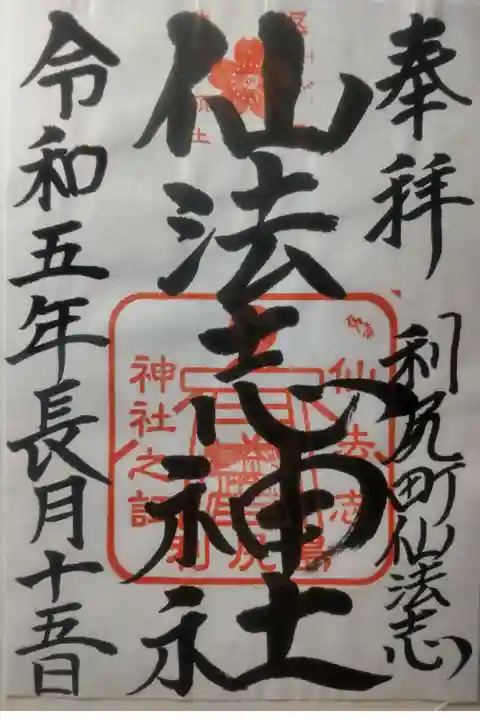 奉拝
利尻町仙法志
仙法志神社
令和五年長月十五日
仙法志
神社之印
利尻島